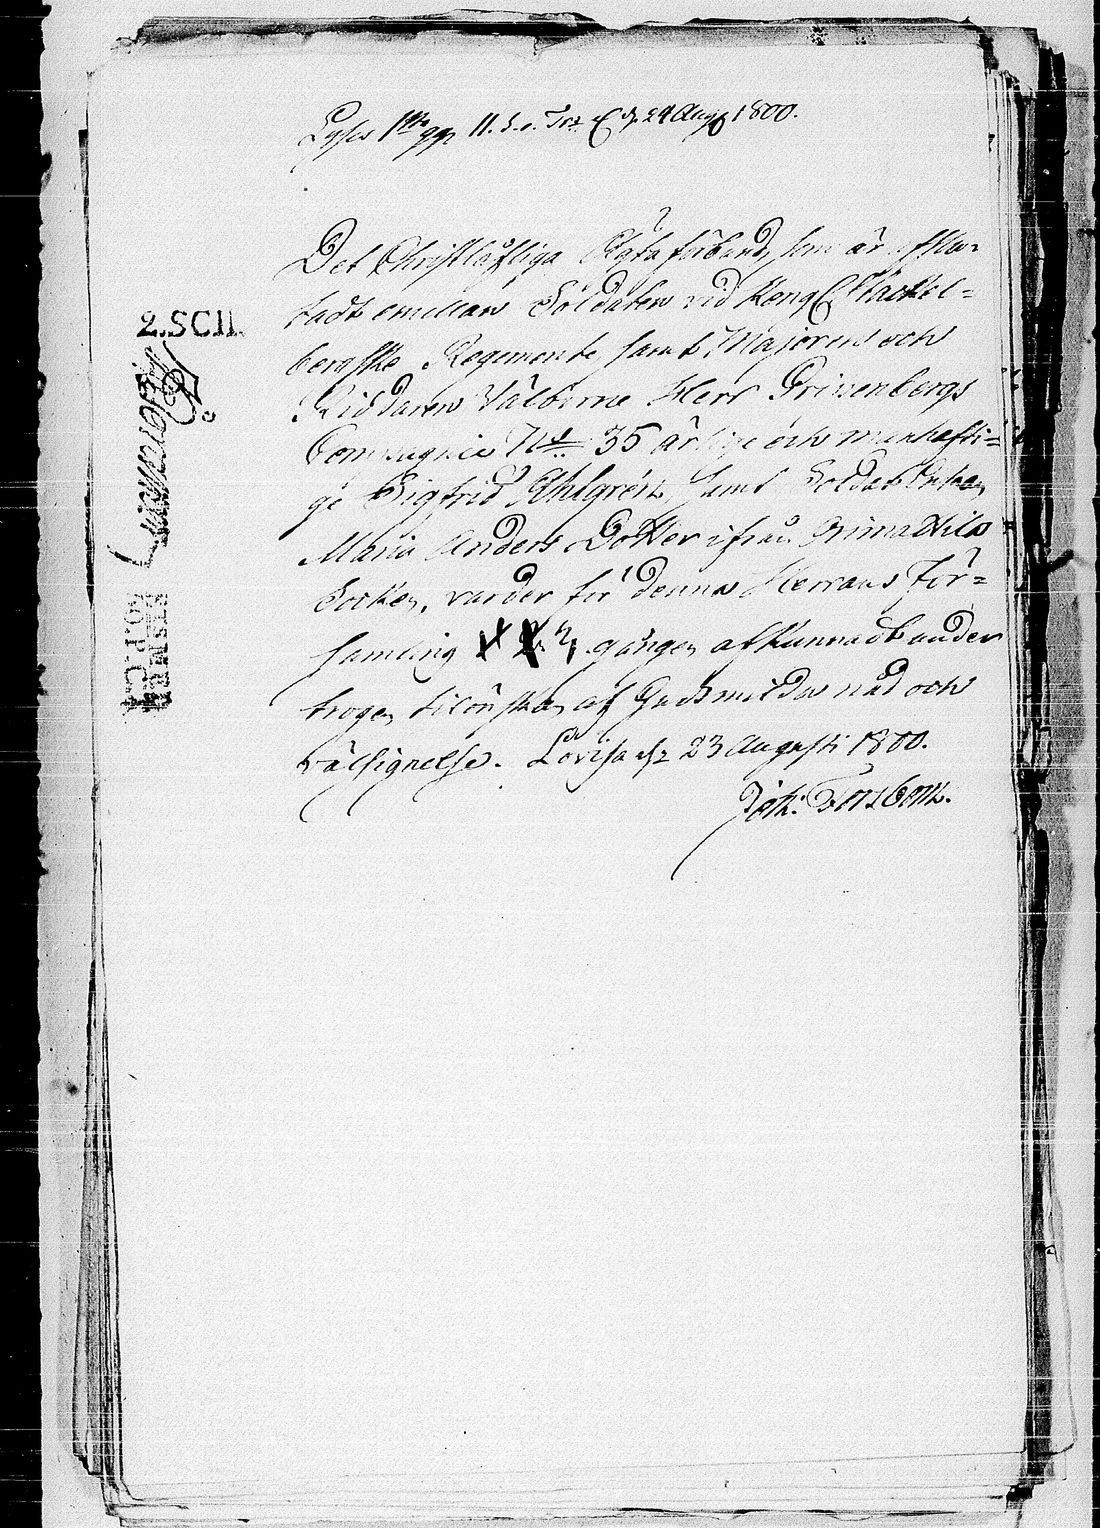 Lyses 1sta gg. 11. S. e. Tref. d. 24 Aug. 1800.
Det Christlåfliga Äktaförband, som är afslu-
tadt emellan Soldaten vid Kongl. Stackel-
bergske Regimente samt Majorens och
Riddaren Välborne Herr Gripenbergs
Compagnie No 35 ärlige och manhafti-
ge Sigfrid Ahlgrén samt Soldat Enkan
Maria Anders Dotter ifrån Artinawils
Socken, varder för denna Herrans För-
samling gången afkunnadt under
trogen tilönskan af Guds milda nåd och
välsignelse. Lovisa d. 23 Augusti 1800.
Joh: Forsbom.
2.SCII.